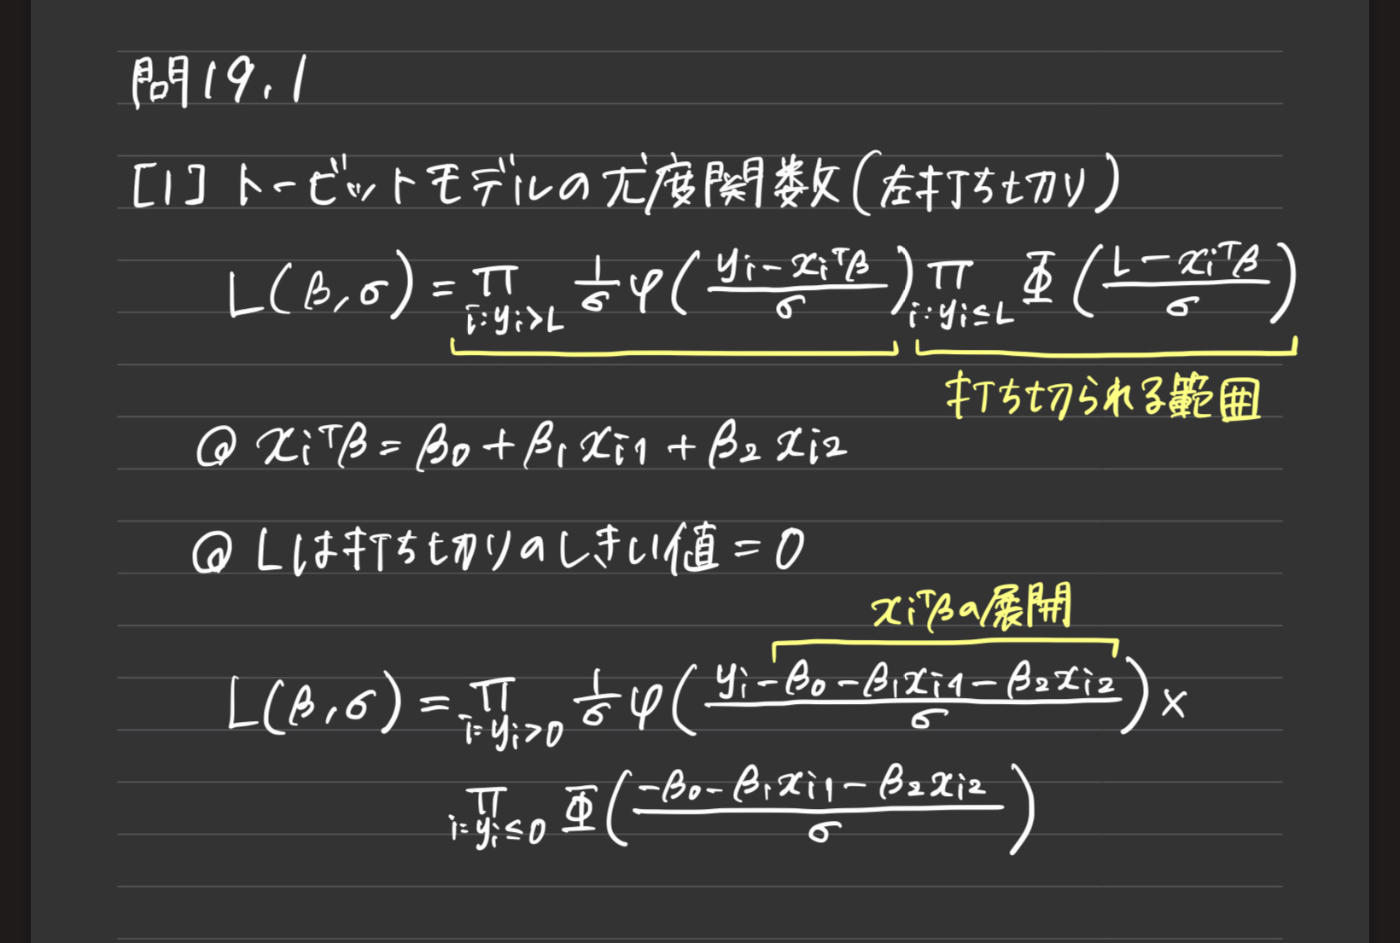 問19.1
[1] トービットモデルの尤度関数(左打ち切り)
L(β,σ) = Π_{i:yi>L} 1/σ φ((yi - xi^Tβ)/σ) Π_{i:yi≤L} Φ((L - xi^Tβ)/σ)
打ち切られる範囲
@ xi^Tβ = β0 + β1 xi1 + β2 xi2
@ Lは打ち切りのしきい値 = 0
xi^Tβの展開
L(β,σ) = Π_{i=yi>0} 1/σ φ((yi - β0 - β1xi1 - β2xi2)/σ) ×
Π_{i=yi≤0} Φ((-β0 - β1xi1 - β2xi2)/σ)